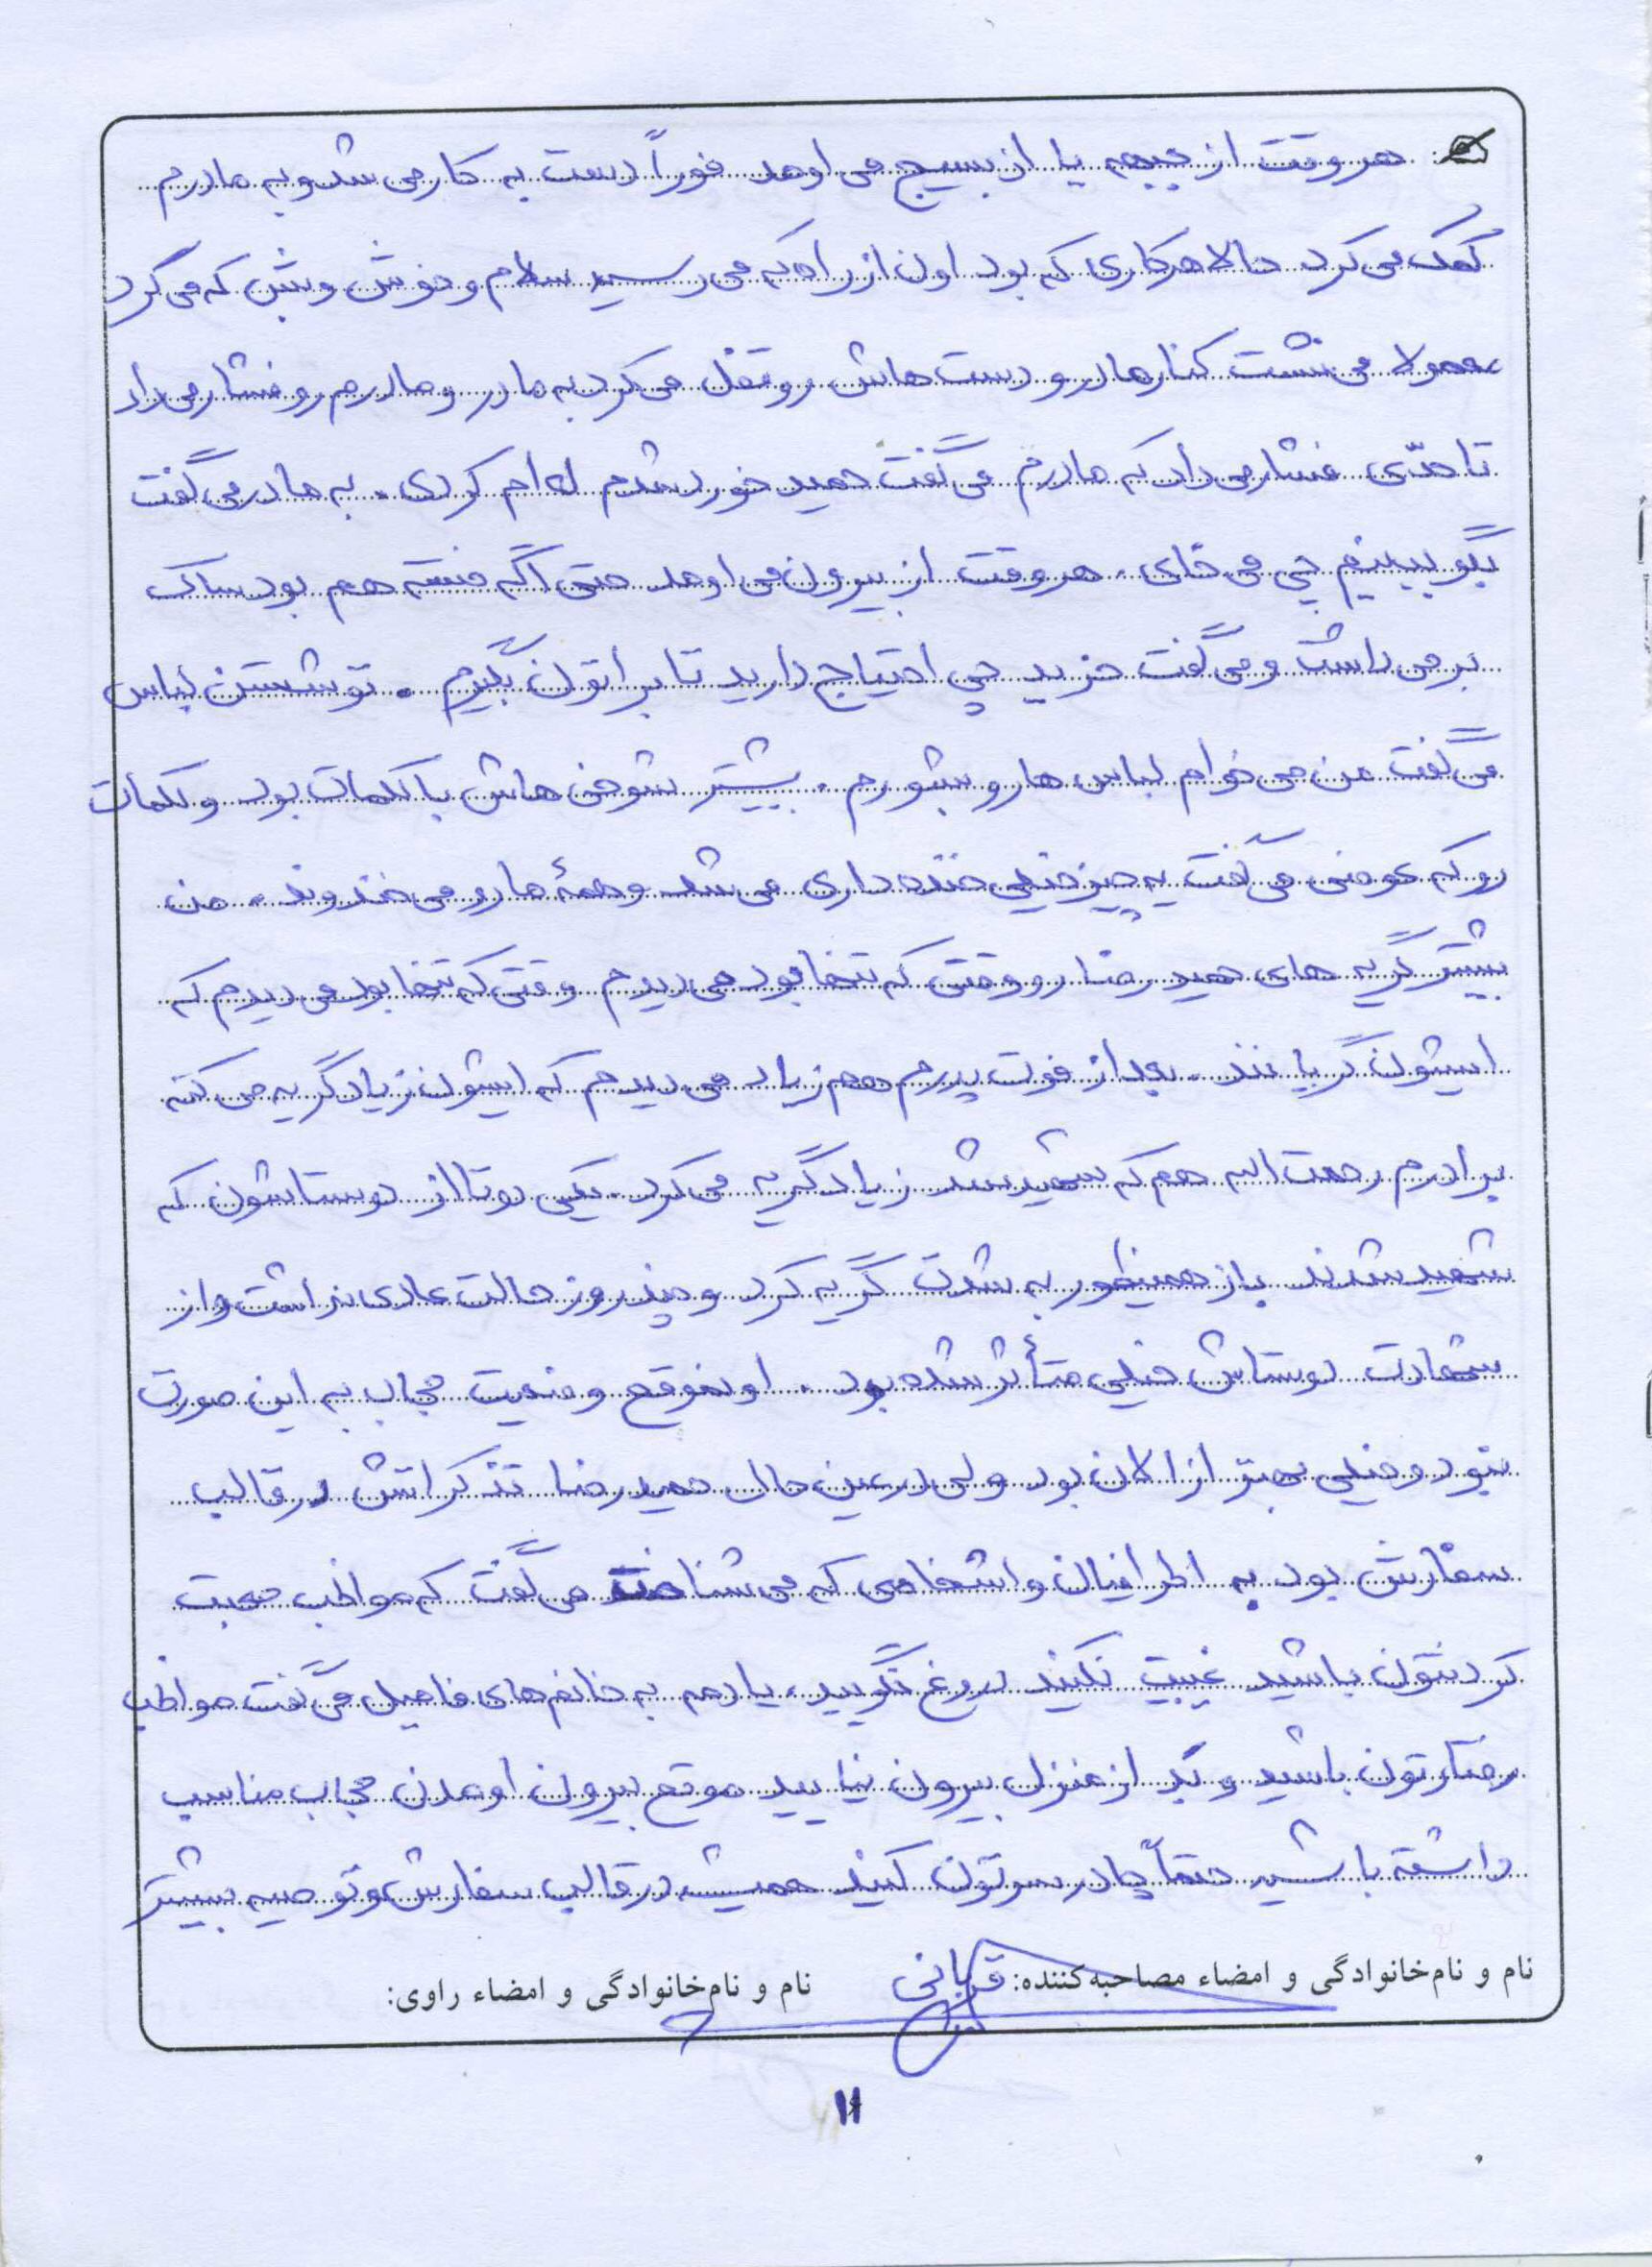 هر وقت از جبهه یا از بسیج می اومد فوراً دست به کار می شد و به مادرم
کمک می کرد حالا هر کاری که بود اون از راه که می رسید سلام و خوش و بش که می کرد
معمولا می نشست کنار مادر و دست هاش رو قفل می کرد به مادر و مادرم رو فشار می داد
تا حدّی فشار می داد که مادرم می گفت حمید خورد شدم له ام کردی . به مادر می گفت
بگو ببینم چی می خای . هر وقت از بیرون می اومد حتی اگه خسته هم بود ساک
بر می داشت و می گفت خرید چی احتیاج دارید تا براتون بگیرم . تو شستن لباس
می گفت من می خوام لباس ها رو بشورم . بیشتر شوخی هاش با کلمات بود و کلمات
رو که عوضی می گفت یه چیز خیلی خنده داری می شد و همهٔ ما رو می خندوند . من
بیشتر گریه های حمید رضا رو وقتی که تنها بود می دیدم وقتی که تنها بود می دیدم که
ایشون گریانند . بعد از فوت پدرم هم زیاد می دیدم که ایشون زیاد گریه می کنه
برادرم رحمت اله هم که شهید شد زیاد گریه می کرد . یکی دوتا از دوستاشون که
شهید شدند باز همینطور به شدت گریه کرد و چند روز حالت عادی نداشت و از
شهادت دوستاش خیلی متأثر شده بود . اونموقع وضعیت حجاب به این صورت
نبود و خیلی بهتر از الان بود ولی در عین حال حمید رضا تذکراتش در قالب
سفارش بود به اطرافیان و اشخاصی که می شناخت می گفت که مواظب صحبت
کردنتون باشید غیبت نکنید دروغ نگویید ، یادمه به خانم های فامیل می گفت مواظب
رفتارتون باشید و بد از منزل بیرون نیایید موقع بیرون اومدن حجاب مناسب
داشته باشید حتماً چادر سرتون کنید همیشه در قالب سفارش و توصیه بیشتر
نام و نام‌خانوادگی و امضاء مصاحبه‌کننده: قربانی نام و نام‌خانوادگی و امضاء راوی:
۱۱